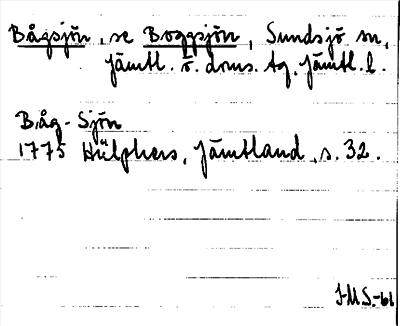 Bågsjön, se Boggsjön, Sundsjö sn,
Jämtl. ö. doms. tg, Jämtl. l.
Båg-Sjön
1775 Hülphers, Jämtland, s. 32.
J-M S.-61